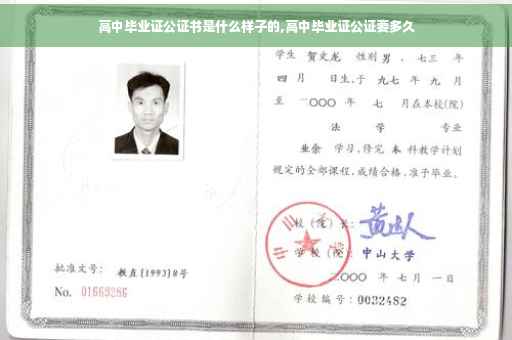 高中毕业证公证书是什么样子的,高中毕业证公证要多久
学生 贺文龙 性别 男 、七三 年
四 月 日生,于 九七 年 九 月
至 二〇〇〇 年 七 月在本校(院)
法 学 专业
业余 学习,修完 本 科教学计划
规定的全部课程,成绩合格,准予毕业。
校(院)长:
学 校(院): 中山大学
二〇〇〇 年 七 月 一 日
学校编号: 0032482
批准文号: 教直[1993]8号
No. 01669286